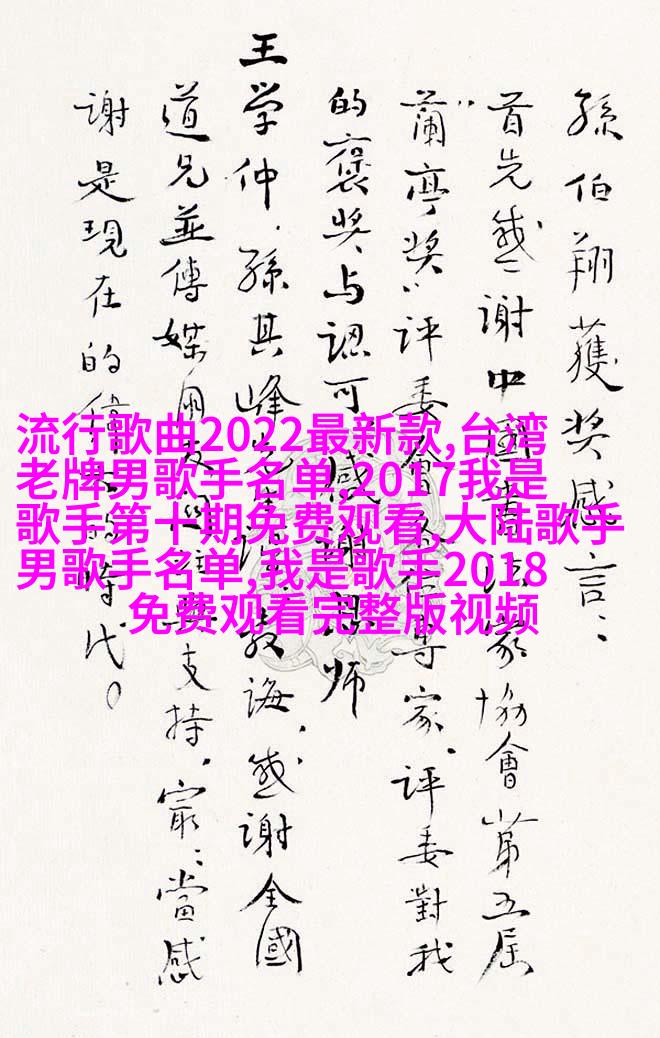 孫伯翔獲奖感言：
首先感謝中國書法家協會第五届
“蘭亭奖”评委會專家、评委對我
的褒奖与認可感謝恩师
王学仲、孫其峰先教誨，感謝全國
道兄並傳媒朋友支持，最：當感
謝是現在的時代。
流行歌曲2022最新款,台湾
老牌男歌手名单,2017我是
歌手第十期免费观看,大陆歌手
男歌手名单,我是歌手2018
免费观看完整版视频